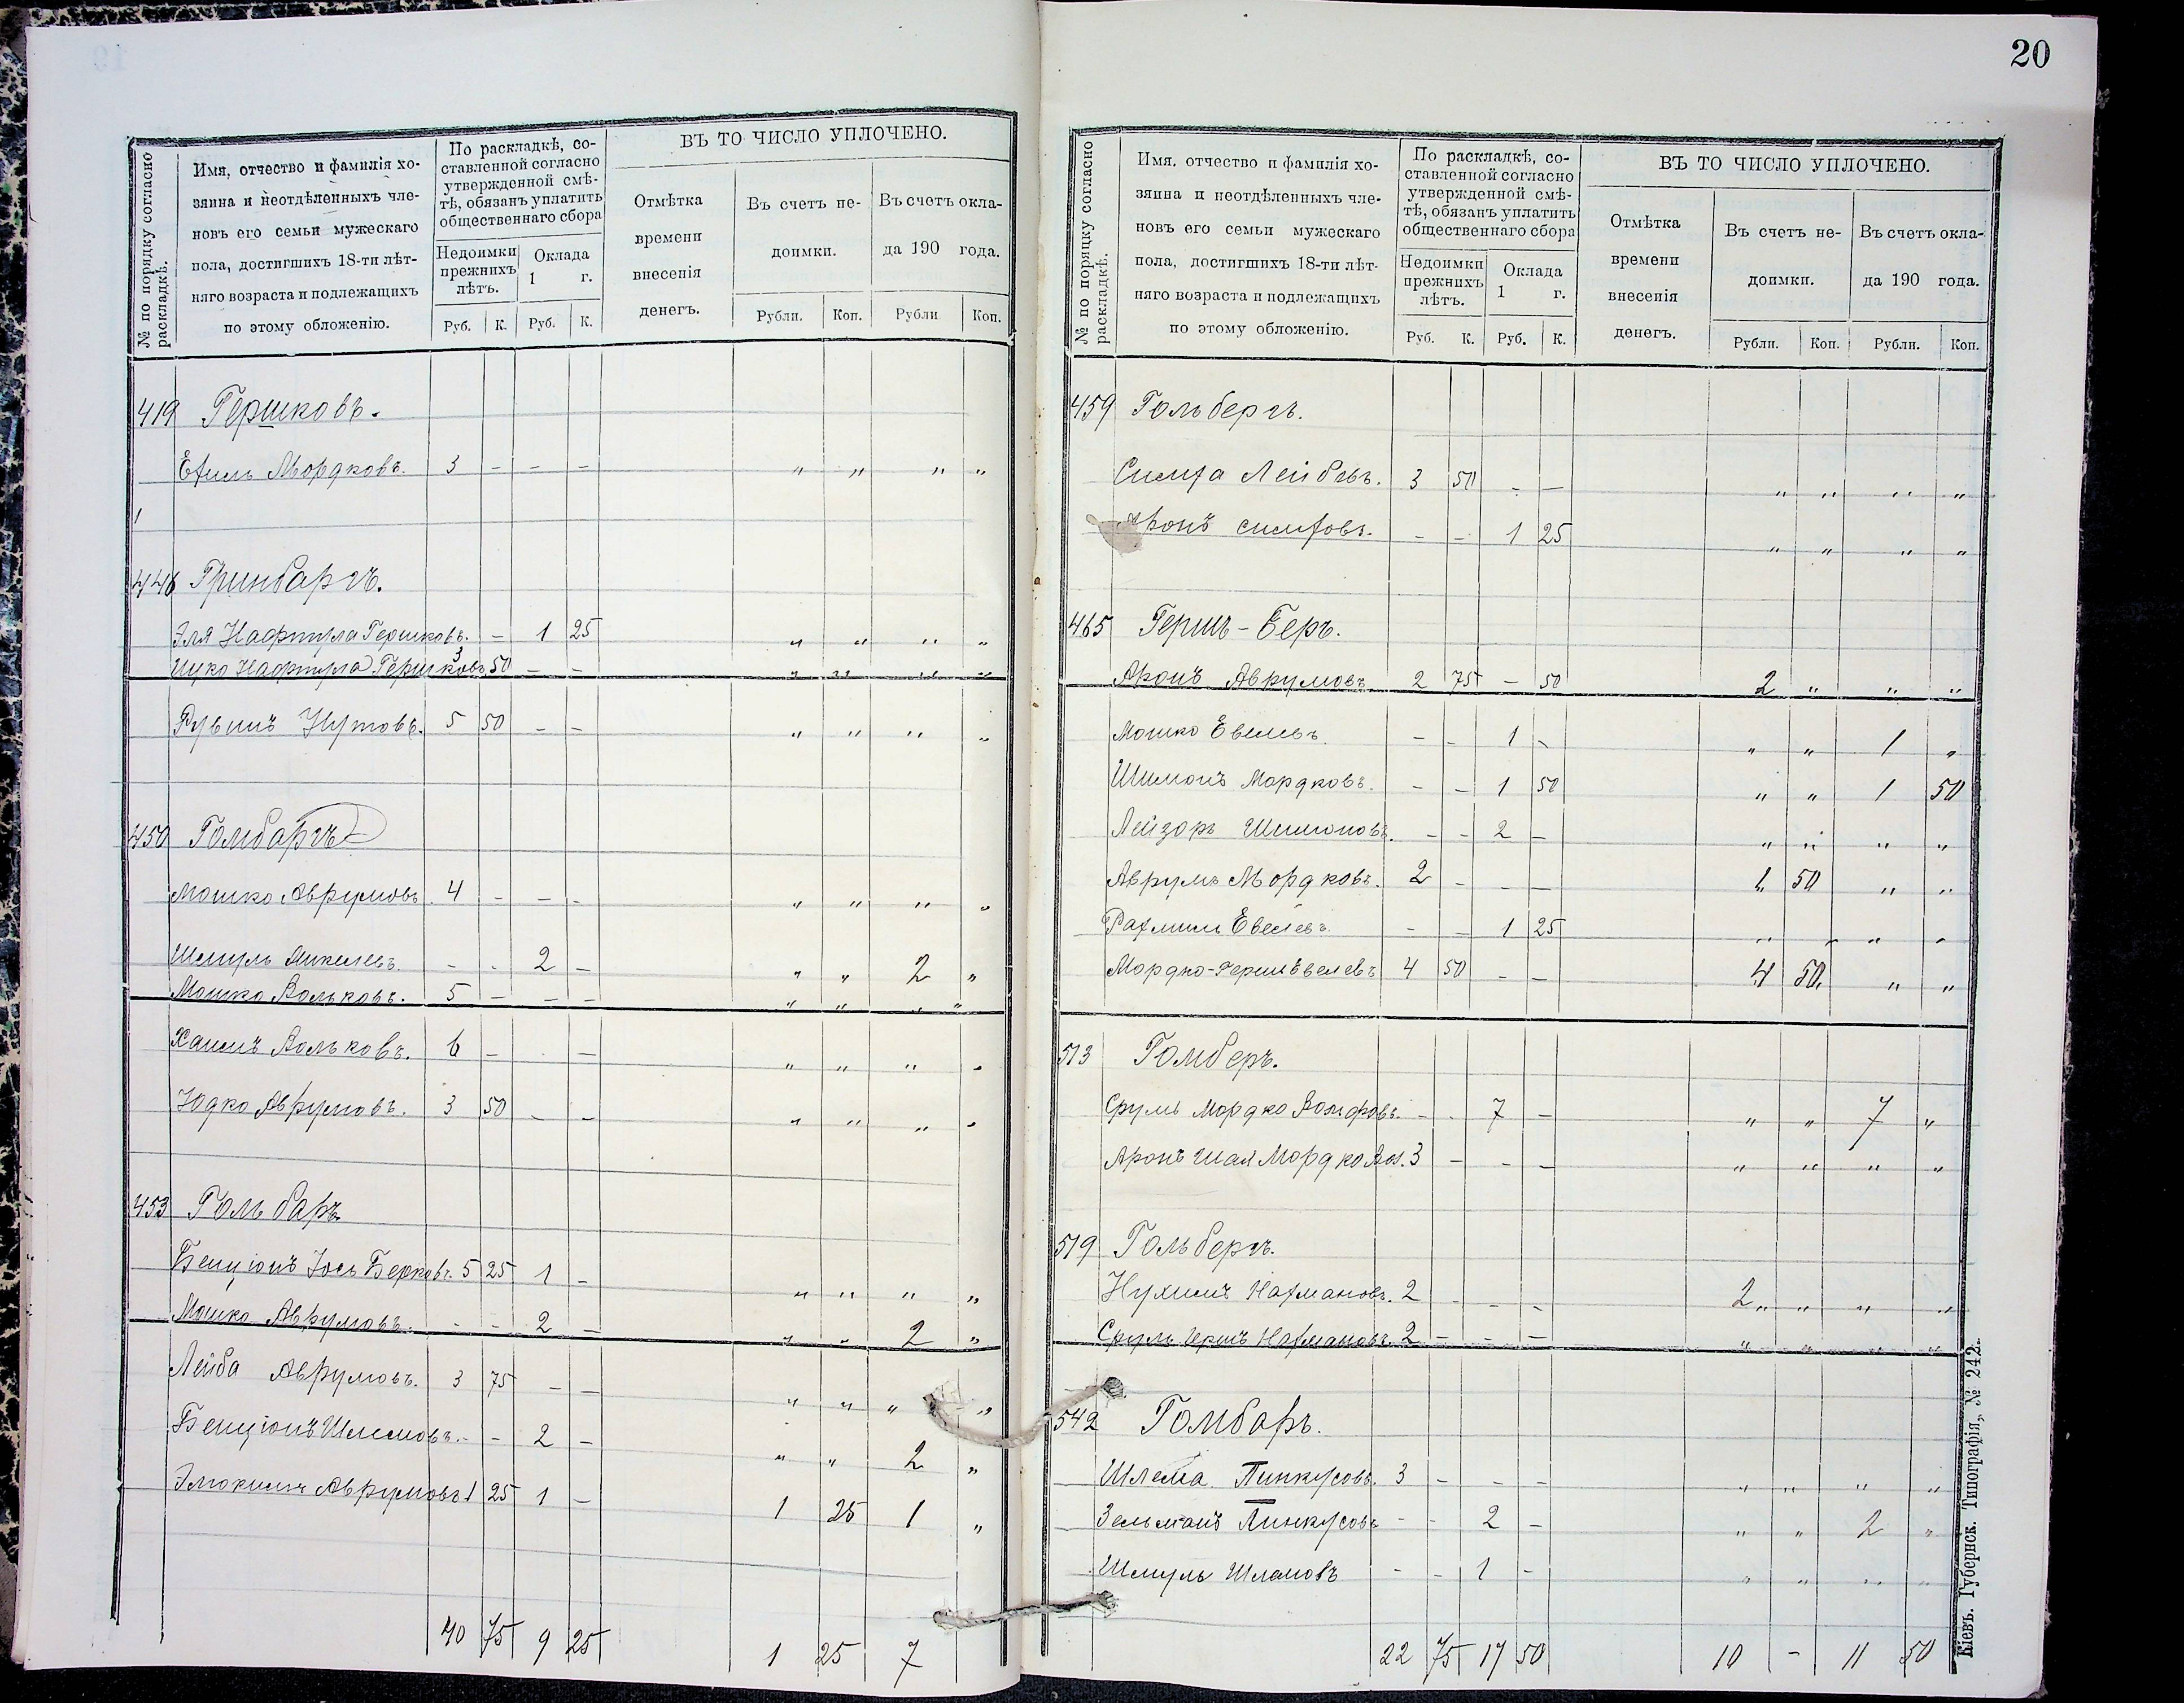 20
ВЪ ТО ЧИСЛО УПЛОЧЕНО.
№ по порядку согласно раскладкѣ.
Имя, отчество и фамилія хо-
зяина и неотдѣленныхъ чле-
новъ его семьи мужескаго
пола, достигшихъ 18-ти лѣт-
няго возраста и подлежащихъ
по этому обложенію.
По раскладкѣ, со-
ставленной согласно
утвержденной смѣ-
тѣ, обязанъ уплатить
общественнаго сбора
Недоимки прежнихъ лѣтъ.
Оклада 1 г.
Руб. К. Руб. К.
Отмѣтка
времени
внесенія
денегъ.
Въ счетъ не-
доимки.
Въ счетъ окла-
да 190 года.
Рубли. Коп. Рубли Коп.
419 Гершковъ.
Мордковъ. 3 - - - " " " "
1
446 Гринбаргъ.
Эля Нафтула Гершковъ. - 1 25 " " " "
Ицко Нафтула Гершковъ 3 50 - - " " " "
Рувинъ Нутовъ. 5 50 - - " " " "
450 Голмбаргъ
Мошко Аврумовъ. 4 - - - " " " "
Шмуль Микелевъ. - - 2 - " " 2 "
Мошко Вольковъ. 5 - - - " " " "
Хаимъ Вольковъ. 6 - - " " " "
Юдко Аврумовъ. 3 50 - - " " " "
453 Гольбаръ
Бенціонъ Іось Берковъ. 5 25 1 - " " " "
Мошко Аврумовъ. - - 2 - " " 2 "
Лейба Аврумовъ. 3 75 - - " " " "
Бенціонъ Шлемовъ. - - 2 - " " 2 "
Аврумовъ 1 25 1 - 1 25 1 "
40 75 9 25 1 25 7
ВЪ ТО ЧИСЛО УПЛОЧЕНО.
№ по порядку согласно раскладкѣ.
Имя, отчество и фамилія хо-
зяина и неотдѣленныхъ чле-
новъ его семьи мужескаго
пола, достигшихъ 18-ти лѣт-
няго возраста и подлежащихъ
по этому обложенію.
По раскладкѣ, со-
ставленной согласно
утвержденной смѣ-
тѣ, обязанъ уплатить
общественнаго сбора
Недоимки прежнихъ лѣтъ.
Оклада 1 г.
Руб. К. Руб. К.
Отмѣтка
времени
внесенія
денегъ.
Въ счетъ не-
доимки.
Въ счетъ окла-
да 190 года.
Рубли. Коп. Рубли. Коп.
459 Гольбергъ.
Симха Лейбовъ. 3 50 - - " " " "
Аронъ Симховъ. - - 1 25 " " " "
465 Гершъ-Беръ.
Аронъ Аврумовъ 2 75 - 50 2 " " "
Мошко Евелевъ. - - 1 - " " 1 "
Шимонъ Мордковъ. - - 1 50 " " 1 50
Лейзоръ Шимоновъ. - - 2 - " " " "
Аврумъ Мордковъ. 2 - - - 1 50 " "
Рахмиль Евелевъ. - - 1 25 " " " "
Мордко-Гершъ Евелевъ 4 50 - - 4 50 " "
513 Голмберъ.
Сруль Мордко Вольфовъ. - - 7 - " " 7 "
Аронъ Шая Мордко Вол. 3 - - - " " " "
519 Гольбергъ.
Нухимъ Нахмановъ. 2 - - - 2 " " "
Сруль Гершъ Нахмановъ. 2 - - - " " " "
542 Голмбаръ.
Шлема Пинкусовъ. 3 - - - " " " "
Зельманъ Пинкусовъ - - 2 - " " 2 "
Шмуль Шлемовъ - - 1 - " " " "
22 75 17 50 10 - 11 50
Кіевъ. Губернск. Типографія, № 242.